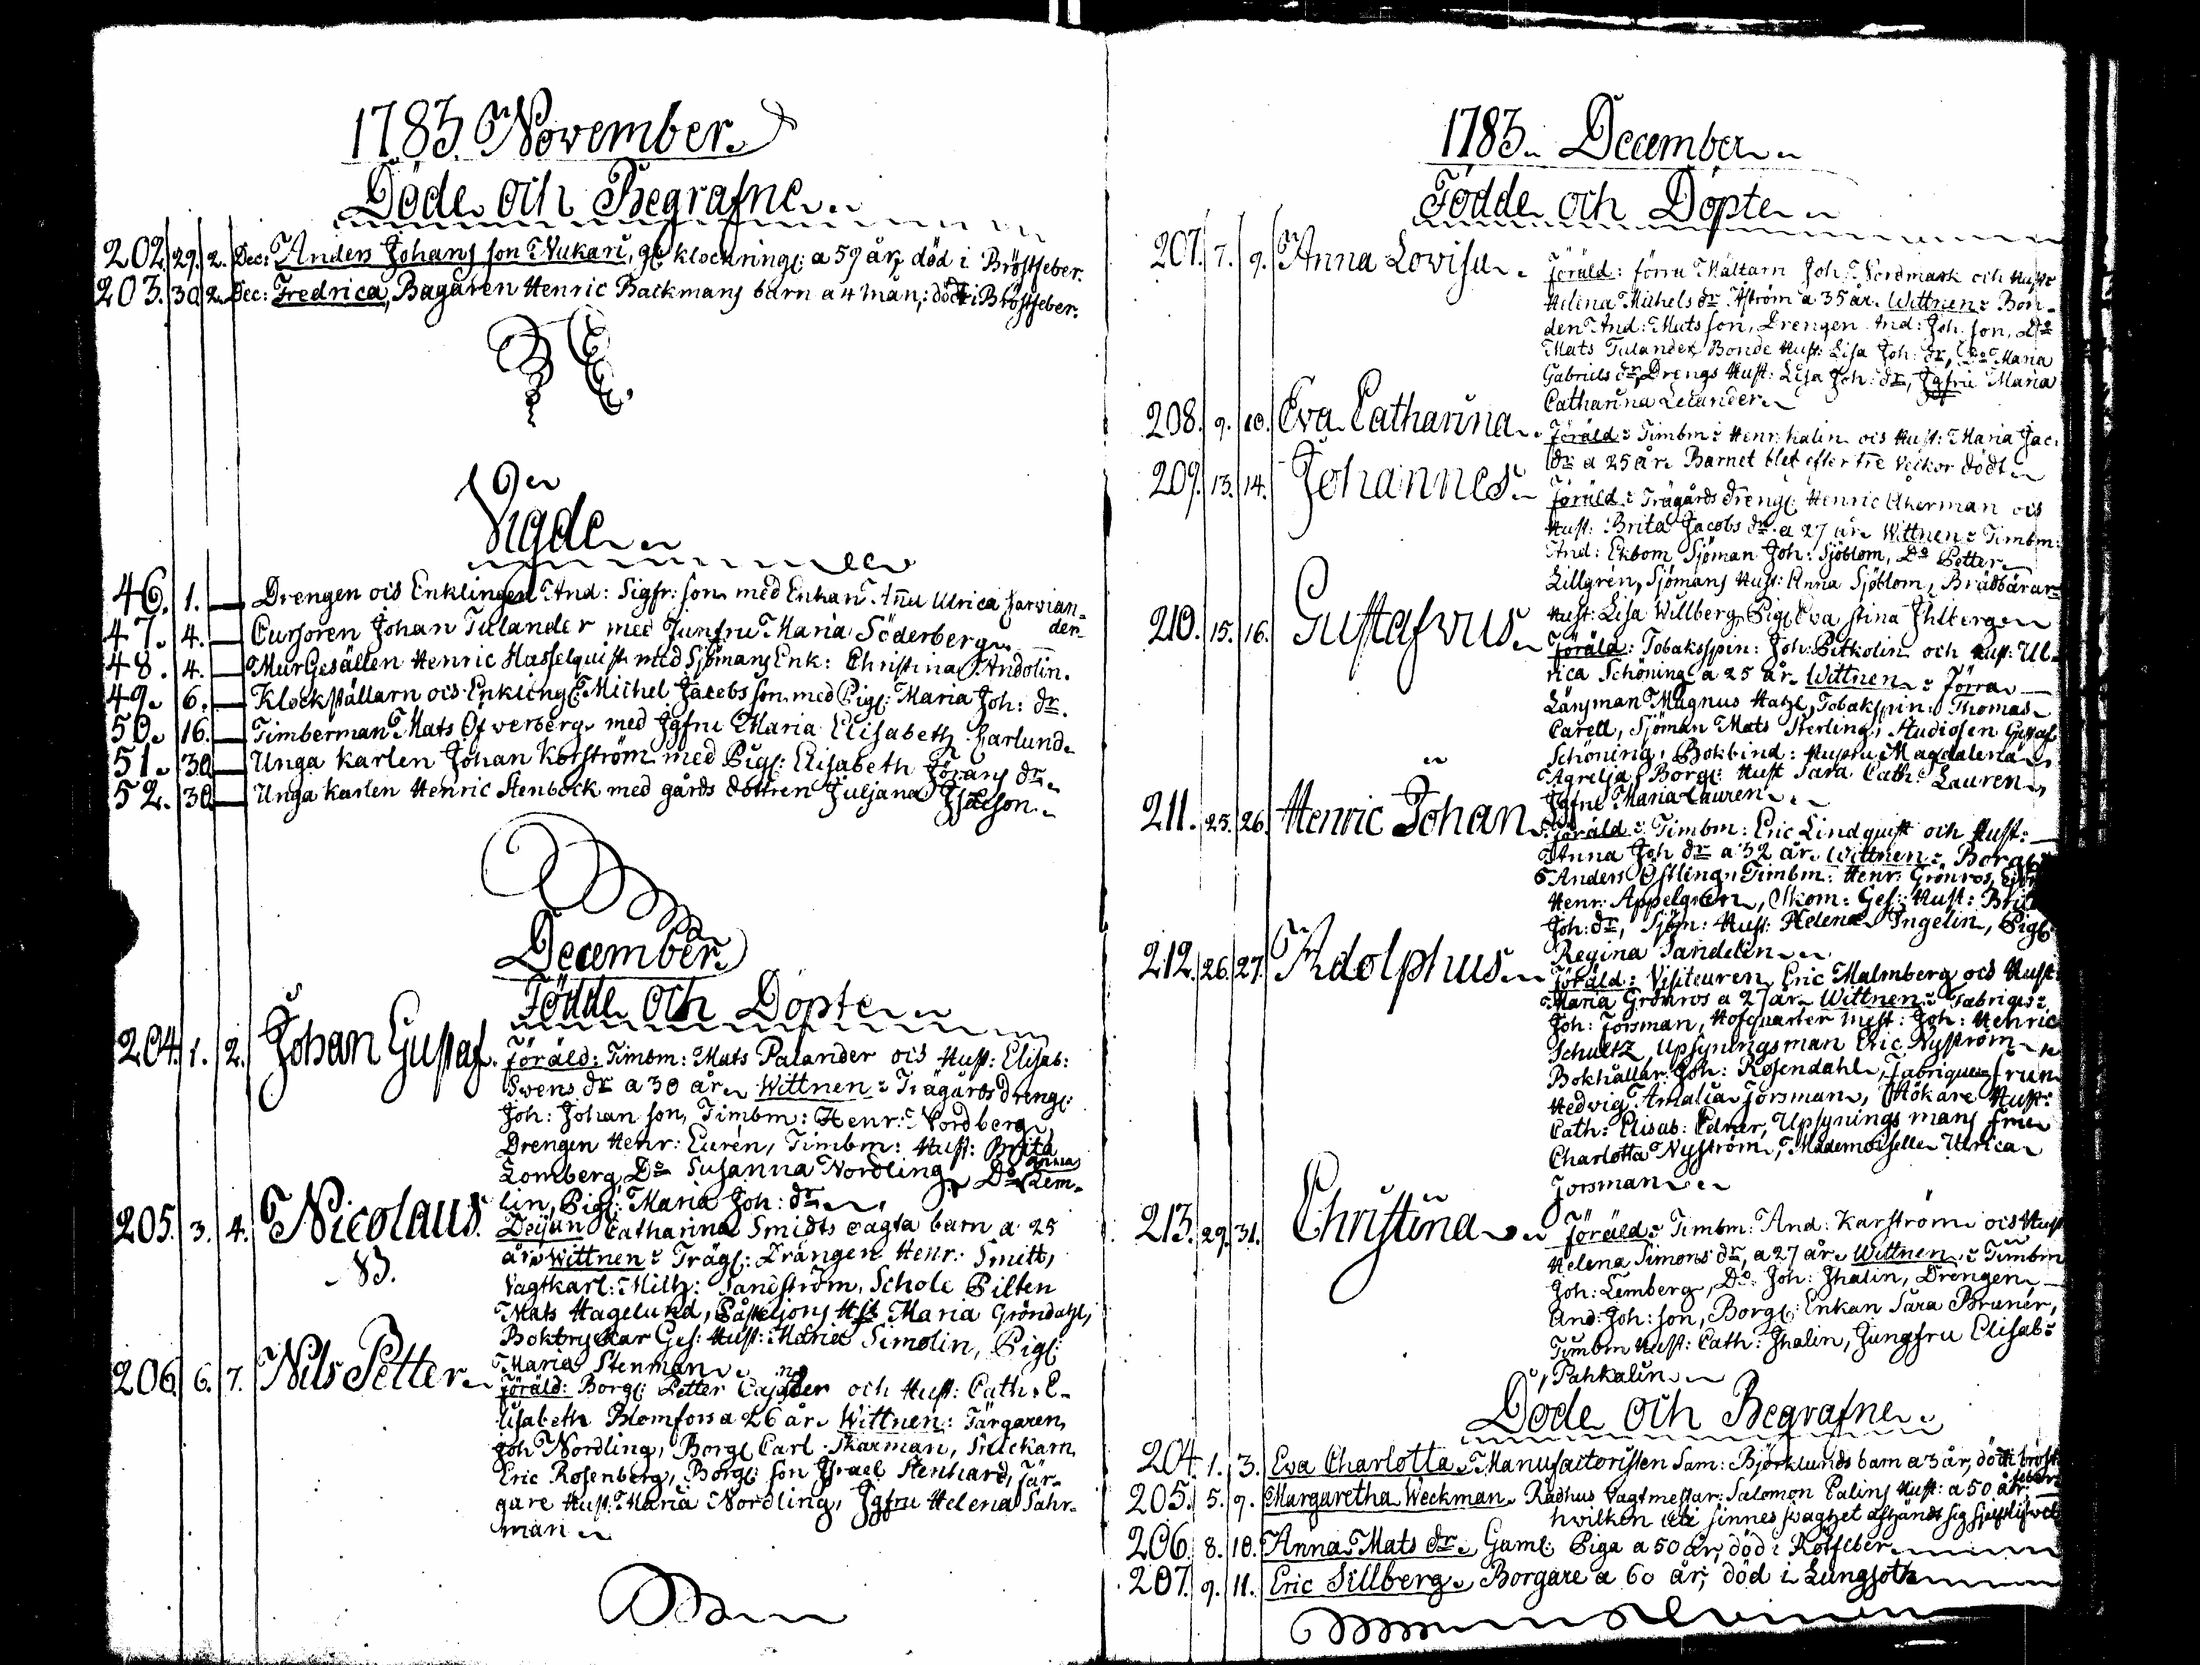 1783. November.
Döde och Begrafne.
202. 29. 2. Dec: Anders Johans son Nukari, gl: klockringl: a 59 år, död i Bröstfeber.
203. 30. 2. Dec: Fredrica, Bagaren Henric Backmans barn a 4 mån; död i Bröstfeber.
Vigde
46. 1. — Drengen och Enklingen And: Sigfr: son med Enkan Anna Ulrica Carvian=
der
47. 4. — Cursoren Johan Tulander med Jungfru Maria Söderberg
48. 4. — MurGesällen Henric Hasselquist med Sjömans Enk: Christina Andolin.
49. 6. — Klockställarn och Enklingl: Michel Jacobs son med Pigl: Maria Joh: dr.
50. 16. — Timberman Mats Öfverberg med Jgfru Maria Elisabeth Carlund
51. 30 — Unga karlen Johan Korström med Pigl: Elisabeth Jörans dr
52. 30 — Unga karlen Henric Stenbock med gårds dottren Juljana
December
Födde och Döpte
204. 1. 2. Johan Gustaf. Föräld: Timbm: Mats Palander och Hust: Elisab:
Svens dr a 30 år. Wittnen: Trägårds drengl:
Joh: Johan son, Timbm: Henr: Nordberg,
Drengen Henr: Euren, Timbm: Hust: Brita
Lomberg, Do Susanna Nordling, Do Anna Lem=
lin, Pigl: Maria Joh: dr
205. 3. 4. Nicolaus. Dejan Catharina Smidts oägta barn a 25
år. Wittnen: Trägl: Drängen Henr: Smitt,
NB. Vagtkarl: Mich: Sandström, Schole Pilten
Mats Hagelund, Påstiljons Hst Maria Gröndahl,
Boktryckar Ges: Hust: Maria Simolin, Pigl:
Maria Stenman
206. 6. 7. Nils Petter Föräld: Borgl: Petter och Hust: Cath: E-
lisabeth Blomfors a 26 år. Wittnen: Färgaren
Joh Nordling, Borgl Carl Skarman, Snickarn
Eric Rosenberg, Borgl: son Israel Stenhard, Fär-
gare Hust: Maria Nordling, Jgfru Helena Sahr-
man
1783. December
Födde och Döpte
207. 7. 9. Anna Lovisa. Föräld: förra Mältarn Joh: Nordmark och Hustr
Helena Michels dr Åström a 35 år. Wittnen: Bon-
den And: Mats son, Drengen And: Joh: son, Do
Mats Tulander, Bonde Hust: Lisa Joh: dr, Do Maria
Gabriels dr, Drengs Hust: Lisa Joh: dr, Jgfru Maria
Catharina Lelander
208. 9. 10. Eva Catharina. Föräld: Timbm: Henr: halin och Hust: Maria Jac:
dr a 25 år. Barnet blef efter tre veckor dödt
209. 13. 14. Johannes Föräld: Trägårds drengl: Henric Åkerman och
Hust: Brita Jacobs dr a 27 år. Wittnen: Timbm:
And: Ekbom, Sjöman Joh: Sjöblom, Do Petter
Lillgren, Sjömans Hust: Anna Sjöblom, Brädbärar
Hust: Lisa Willberg, Pigl Eva Stina Ihlberg
210. 15. 16. Gustafvus Föräld: Tobakspin: Joh: Pitkolin och Hust: Ul-
rica Schöning a 25 år. Wittnen: Förra
Länsman Magnus Hatzl, Tobakspin: Thomas
Carell, Sjöman Mats Sterling, Studiosen Gustaf
Schöning, Bokbind: Hustru Magdalena
Agrelia, Borgl: Hust Sara Cath: Lauren
Jgfru Maria Lauren
211. 25. 26. Henric Johan Föräld: Timbm: Eric Lindquist och Hust:
Anna Joh dr a 32 år. Wittnen: Borg
Anders Östling, Timbm: Henr: Grönros,
Henr: Appelgren, Skom: Ges: Hust:
Joh: dr, Sjöm: Hust: Helena Ingelin, Pigl:
Regina Sandelin
212. 26. 27. Adolphus Föräld: Visiteuren Eric Malmberg och Hust
Maria Grönros a 27 år. Wittnen: Fabriqus:
Joh: Forsman, Hofquarter mest: Joh: Henric
Schultz, Upsyningsman Eric Nyström
Bokhållar Joh: Rosendahl, Fabriqueur frun
Hedvig Amalia Forsman, Hökare Hust:
Cath: Elisab: Edner, Upsynings mans fru
Charlotta Nyström, Mademoiselle Ulrica
Forsman
213. 29. 31. Christina Föräld: Timbm: And: Karström och Hust
Helena Simons dr, a 27 år. Wittnen: Timbm
Joh: Lemberg, Do: Joh: Ihalin, Drengen
And: Joh: son, Borgl: Enkan Sara Bruner,
Timbm Hust: Cath: Ihalin, Jungfru Elisab:
Pahkalin
Döde och Begrafne
204. 1. 3. Eva Charlotta, Manufactoristen Sam: Björklunds barn a 3 år, död i bröst
feber
205. 5. 9. Margaretha Weckman Rådhus Vagtmestar: Salomon Palins Hust: a 50 år.
hvilken
206. 8. 10. Anna Mats dr. Gaml: Piga a 50 år, död i Rötfeber
207. 9. 11. Eric Sillberg, Borgare a 60 år, död i Lungsot